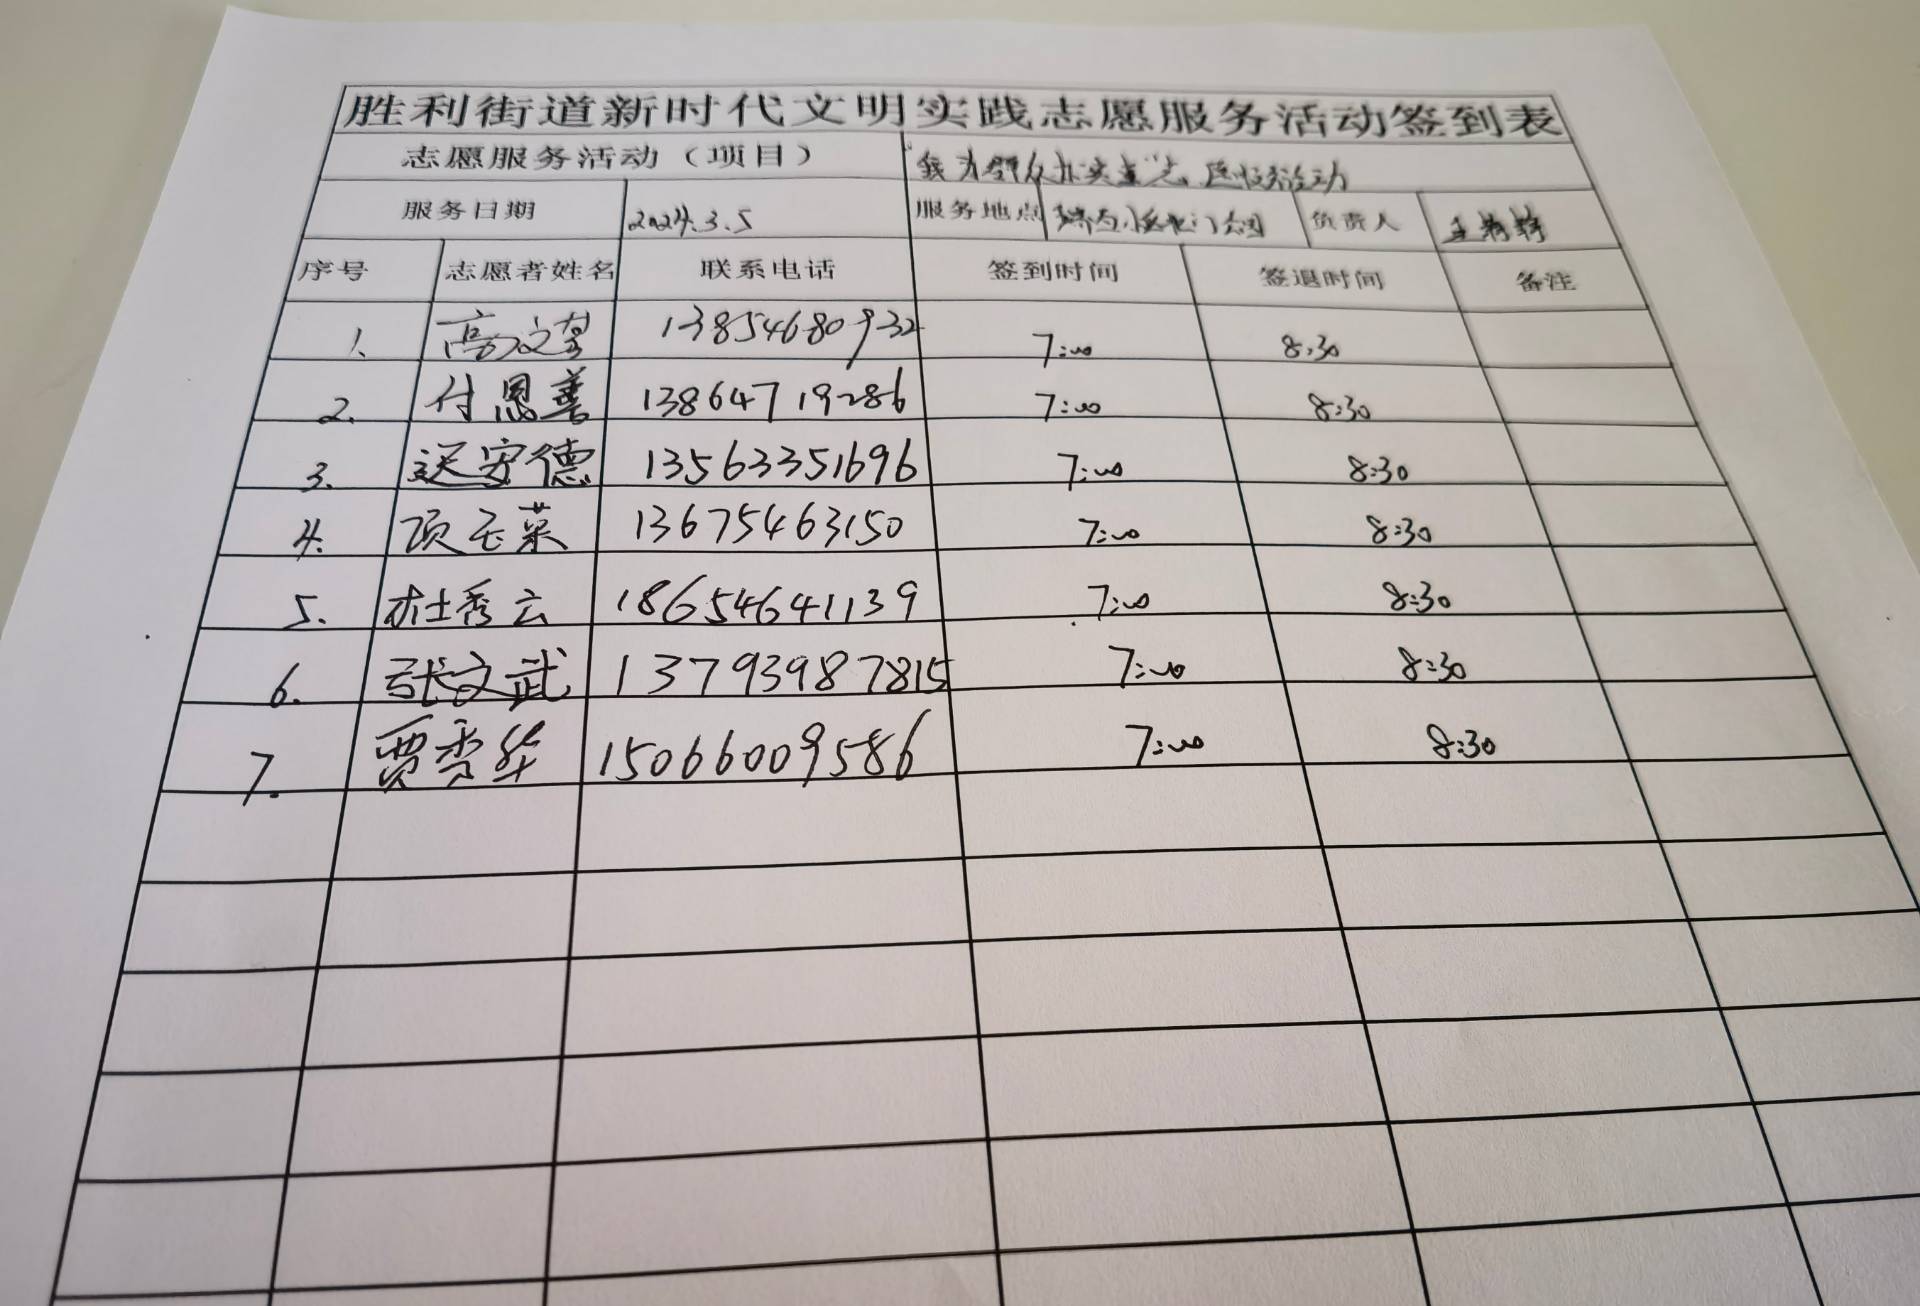 胜利街道新时代文明实践志愿服务活动签到表
志愿服务活动（项目） "我为群众办实事"志愿服务活动
服务日期 2024.3.5 服务地点 负责人
序号 志愿者姓名 联系电话 签到时间 签退时间 备注
1. 高文 13854680932 7:00 8:30
2. 付恩善 13864719286 7:00 8:30
3. 安德 13563351696 7:00 8:30
4. 项玉菜 13675463150 7:00 8:30
5. 杜秀云 18654641139 7:00 8:30
6. 张文武 13793987815 7:00 8:30
7. 贾秀华 15066009586 7:00 8:30